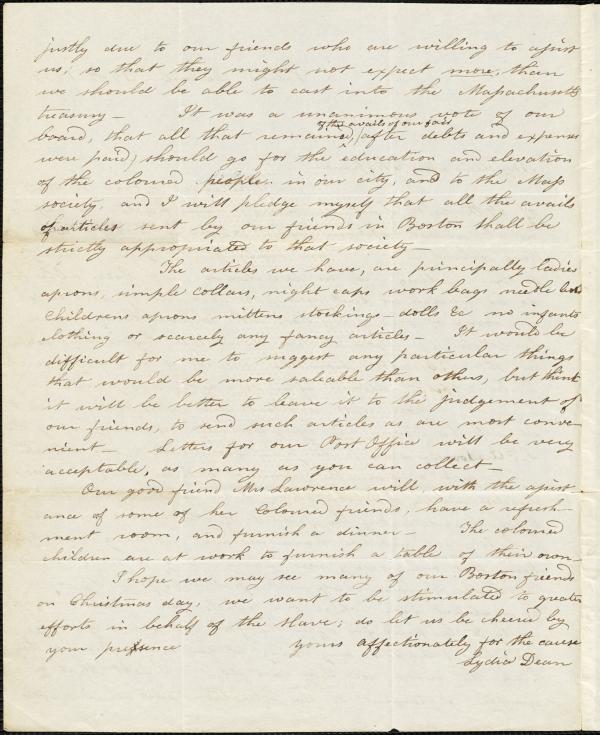 justly due to our friends who are willing to assist
us; so that they might not expect more, than
we should be able to cast into the Massachusetts
treasury — It was a unanimous vote of our
of the avails of our fair
board, that all that remained, (after debts and expenses
were paid) should go for the education and elevation
of the coloured people in our city, and to the Mass
society, and I will pledge myself that all the avails
of articles sent by our friends in Boston shall be
strictly appropriated to that society —
The articles we have, are principally ladies
aprons, simple collars, night caps work bags needle
childrens aprons mittens stockings — dolls &c no infants
clothing or scarcely any fancy articles — It would be
difficult for me to suggest any particular things
that would be more saleable than others, but think
it will be better to leave it to the judgement of
our friends, to send such articles as are most conve-
nient — Letters for our Post Office will be very
acceptable, as many as you can collect —
Our good friend Mrs Lawrence will, with the assist
ance of some of her Coloured friends, have a refresh-
ment room, and furnish a dinner — The coloured
children are at work to furnish a table of their own —
I hope we may see many of our Boston friends
on Christmas day, we want to be stimulated to greater
efforts in behalf of the slave; do let us be cheered by
your presence yours affectionately for the cause
Lydia Dean